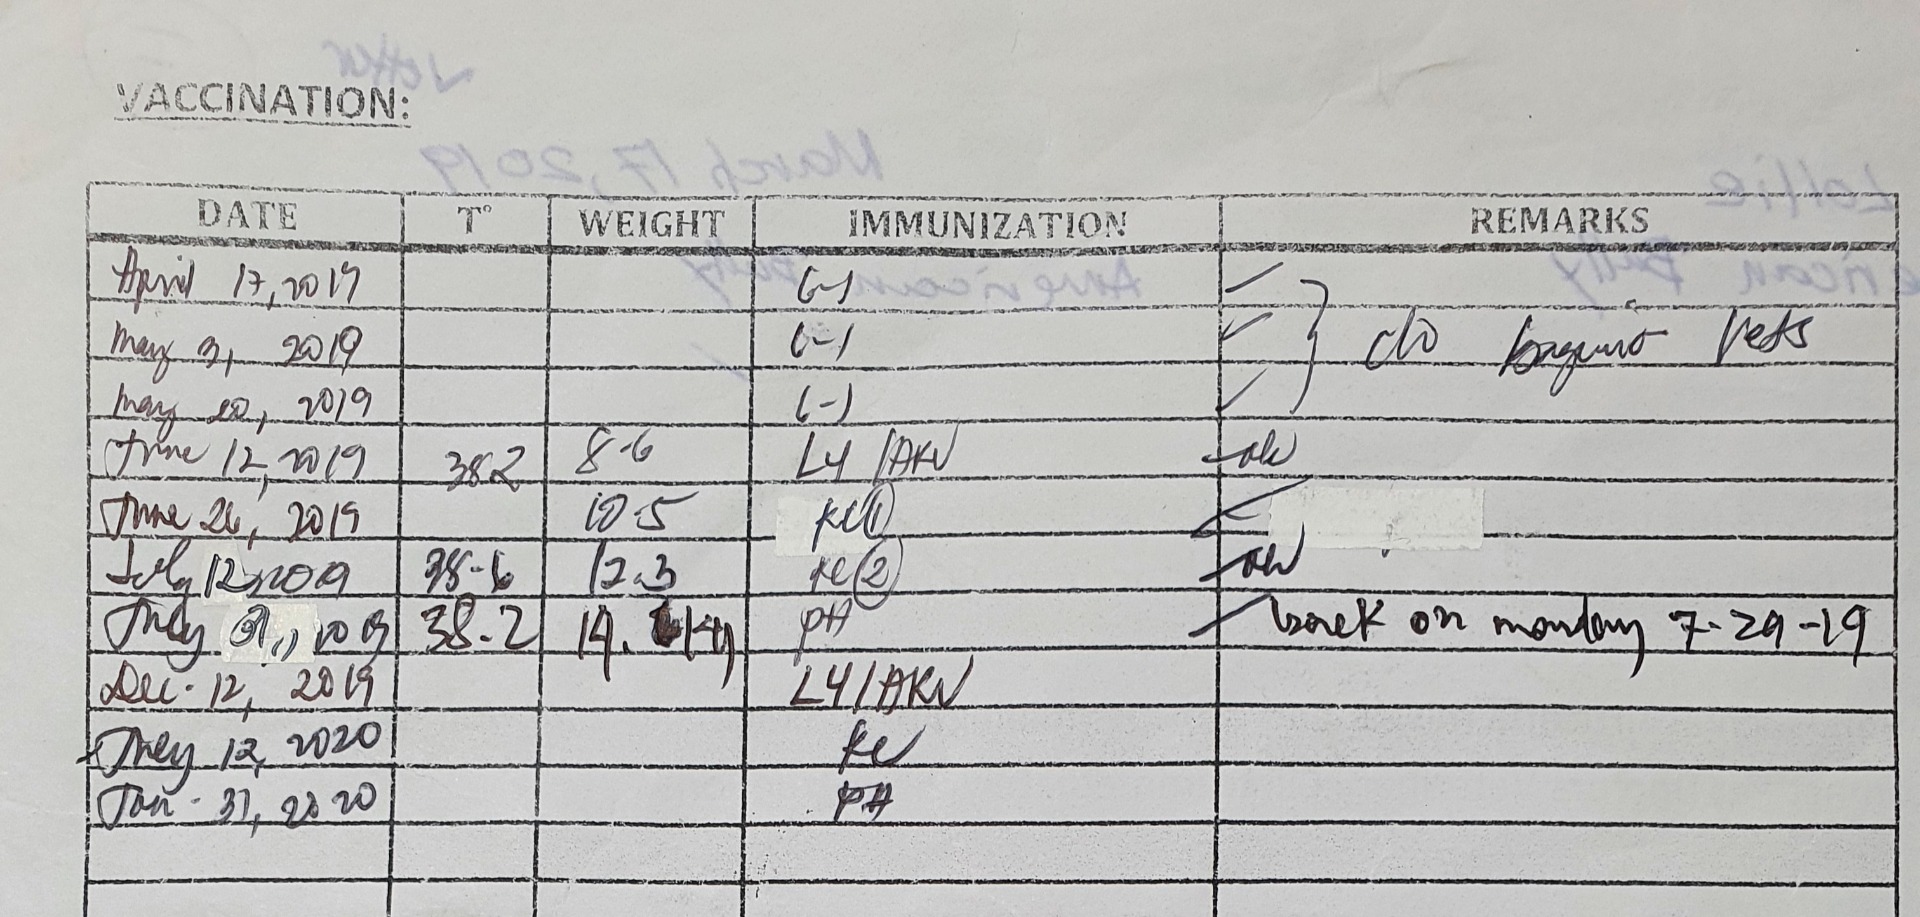 VACCINATION:
DATE T° WEIGHT IMMUNIZATION REMARKS
April 17, 2019 6-1
May 3, 2019 6-1 c/o Vets
May 20, 2019 6-1
June 12, 2019 38.2 8.6 L4 /AKV ok
June 26, 2019 10.5 KC 1
July 12, 2019 38.6 12.3 KC 2 ok
July 2019 38.2 14. PH back on monday 7-29-19
Dec. 12, 2019 L4/AKV
12, 2020 KC
Jan. 31, 2020 PH